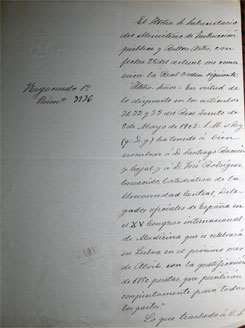 El Iltmo. Sr. Subsecretario
del Ministerio de Instrucción
pública y Bellas Artes, con
fecha 28 del actual me comu
nica la Real Orden siguiente:
Iltmo. Señor: En virtud de lo
dispuesto en los artículos
31, 32 y 33 del Real Decreto de
8 de Mayo de 1903, S. M. el Rey
(q. D. g.) ha tenido á bien
nombrar á D. Santiago Ramón
y Cajal y á D. José Rodríguez
Carracido, Catedráticos de la
Universidad Central, Dele
gados oficiales de España en
el XV Congreso internacional
de Medicina que se celebrará en
Lisboa en el próximo mes
de Abril, con la gratificación
de pesetas, que percibirán
conjuntamente para todos
los gastos.
Lo que traslado á
Negociado 1º
Núm.º